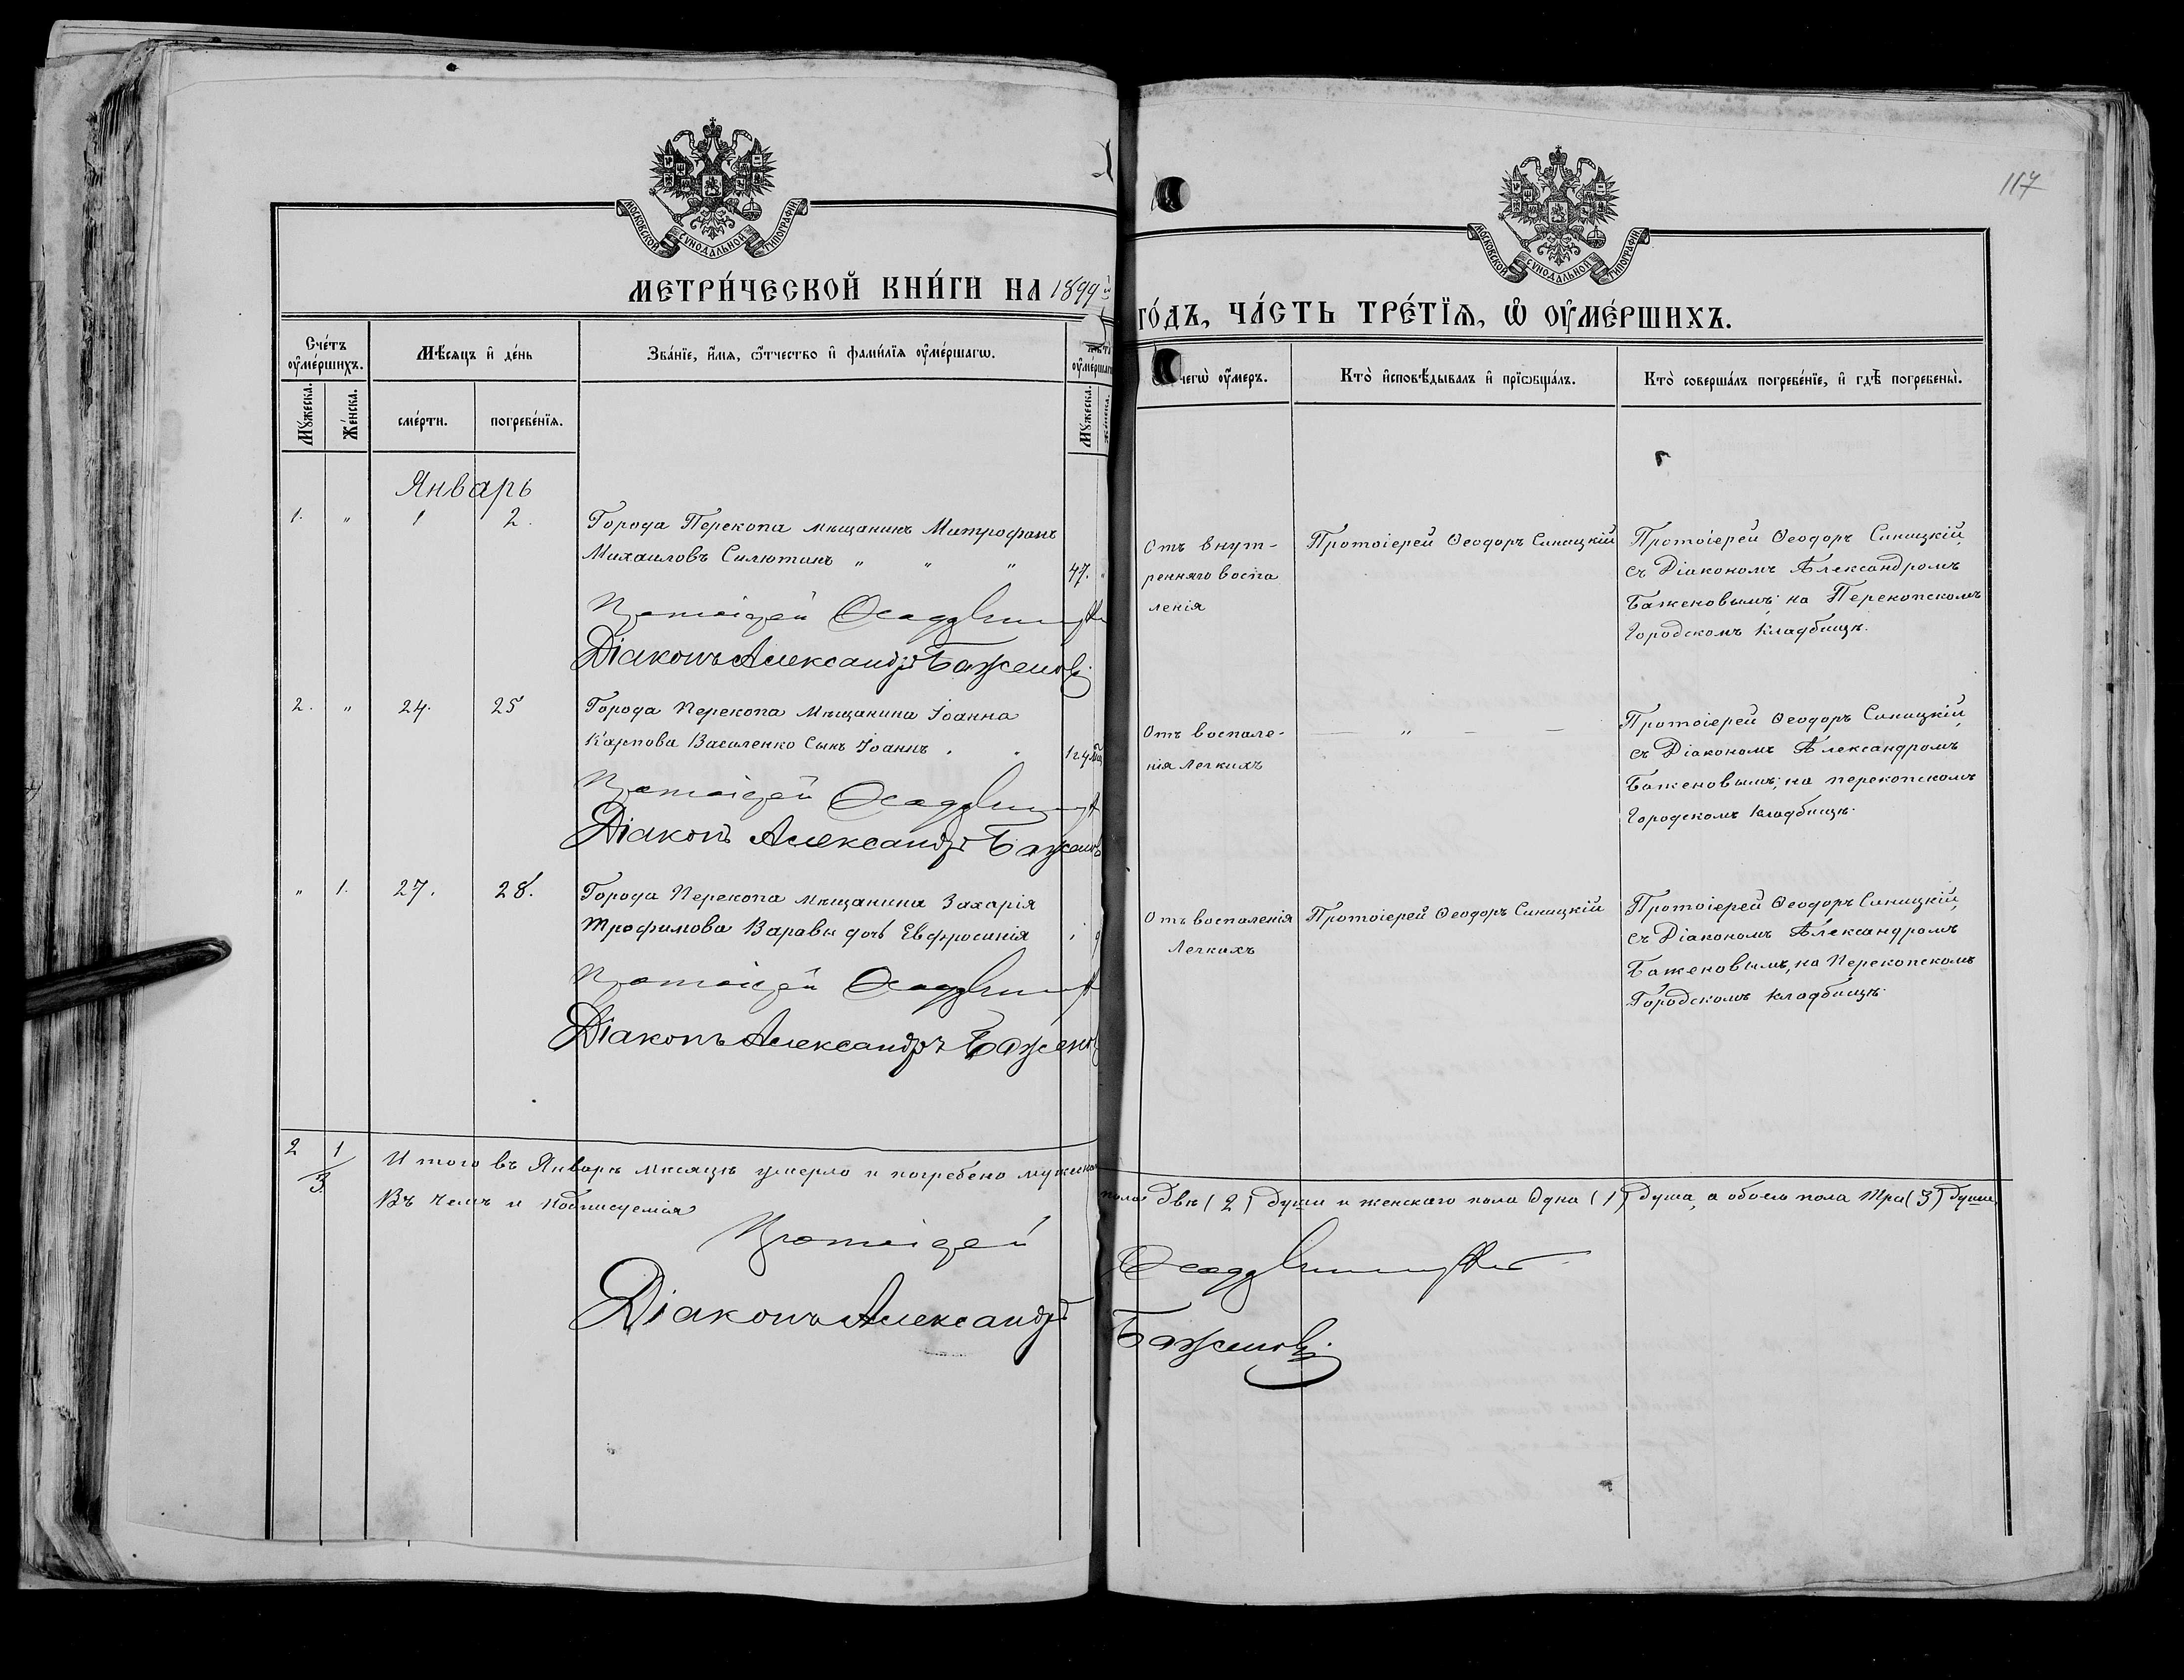 117
МОСКОВСКОЙ СѴНОДАЛЬНОЙ ТИПОГРАФІИ
МОСКОВСКОЙ СѴНОДАЛЬНОЙ ТИПОГРАФІИ
МЕТРИ́ЧЕСКОЙ КНИ́ГИ НА 1899й
ГО́ДЪ, ЧА́СТЬ ТРЕ́ТІѦ, Ѡ҆ ОУ҆МЕ́РШИХЪ.
Сче́тъ оу҆ме́ршихъ.
Мѣ́сяцъ и҆ де́нь
Зва́нїе, и҆́мѧ, ѻ҆́тчество и҆ фами́лїѧ оу҆ме́ршагѡ.
Лѣта оу҆ме́ршагѡ
чегѡ̀ оу҆́меръ.
Кто̀ и҆сповѣ́дывалъ и҆ прїѡбща́лъ.
Кто̀ соверша́лъ погребе́нїе, и҆ гдѣ̀ погребены̀.
Мꙋ́жеска.
Же́нска.
сме́рти.
погребе́нїѧ.
Мꙋ́жеска.
Же́нска.
Январь
1. " 1 2.
Города Перекопа мѣщанинъ Митрофанъ
Михаиловъ Силютинъ " " "
47. "
Протоіерей
Діаконъ Александръ Баженовъ
Отъ внут-
ренняго воспа
ленія
Протоіерей Ѳеодоръ Синицкій
Протоіерей Ѳеодоръ Синицкій,
съ Діакономъ Александромъ
Баженовымъ; на Перекопскомъ
Городскомъ кладбищѣ.
2. " 24. 25
Города Перекопа мѣщанина Іоанна
Карпова Василенко сынъ Іоаннъ . "
Протоіерей
Діаконъ Александръ Баженовъ
Отъ воспале-
нія легкихъ
— " — —
Протоіерей Ѳеодоръ Синицкій,
съ Діакономъ Александромъ
Баженовымъ; на перекопскомъ
Городскомъ кладбищѣ.
" 1. 27. 28.
Города Перекопа мѣщанина Захарія
Трофимова Варавы дочь Евфросинія
Протоіерей
Діаконъ Александръ Баженовъ
Отъ воспаленія
легкихъ
Протоіерей Ѳеодоръ Синицкій
Протоіерей Ѳеодоръ Синицкій,
съ Діакономъ Александромъ
Баженовымъ, на Перекопскомъ
Городскомъ кладбищѣ.
2 1
3
Итого въ Январѣ мѣсяцѣ умерло и погребено мужскаго
пола двѣ (2) души и женскаго пола одна (1) душа, а обоего пола три (3) души,
Въ чемъ и подписуемся
Протоіерей
Діаконъ Александръ
Баженовъ